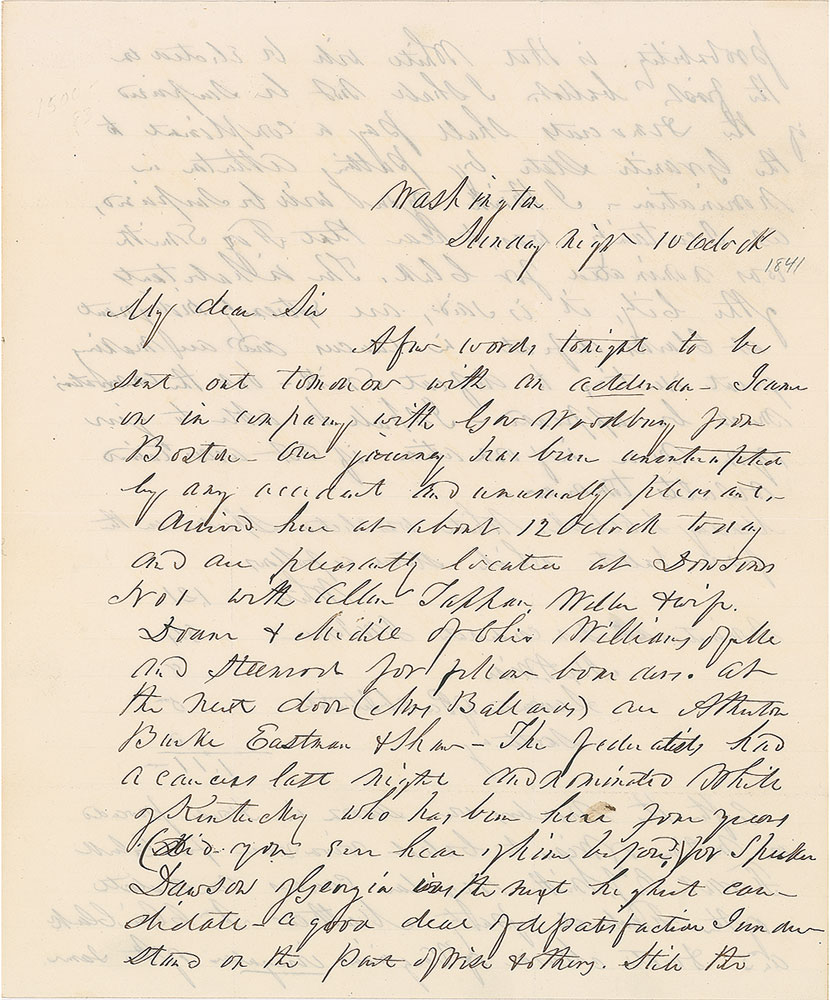 Washington
Sunday night 10 Oclock
1841
My dear Sir
A few words tonight to be
sent out tomorrow with an addenda - I came
on in company with Gov Woodbury from
Boston - Our journey has been uninterrupted
by any accident and unusually pleasant, -
Arrived here at about 12 Oclock today
and are pleasantly located at Dowsons
No 1 with Allen Tappan, Weller & wife.
Doane & Medill of Ohio Williams of Me
and Steenrod for fellow boarders. at
the next door (Mrs Ballards) are Atherton
Burke Eastman & Shaw - The federalists had
a caucus last night and nominated White
of Kentucky who has been here four years
(Did you ever hear of him before?) for Speaker
Dawson of Georgia was the next highest can-
didate - a good deal of dissatisfaction I under-
stand on the part of Wise & others. Still the